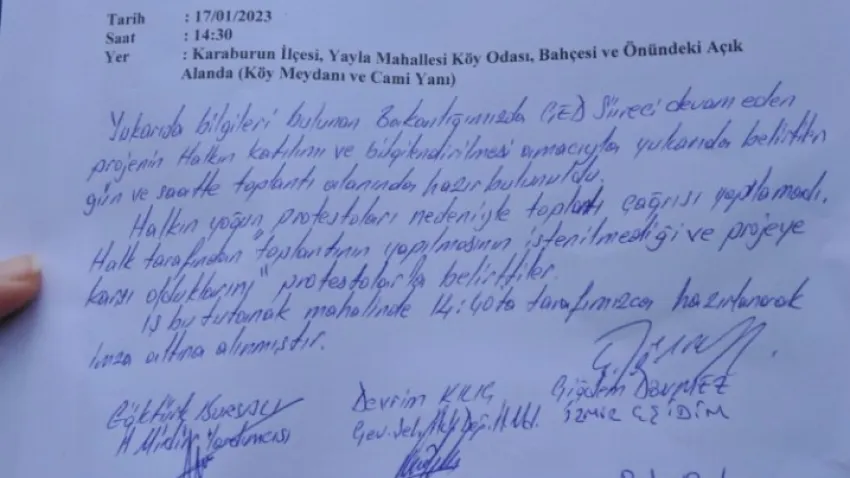 Tarih : 17/01/2023
Saat : 14:30
Yer : Karaburun İlçesi, Yayla Mahallesi Köy Odası, Bahçesi ve Önündeki Açık
Alanda (Köy Meydanı ve Cami Yanı)
Yukarıda bilgileri bulunan Bakanlığımızda ÇED Süreci devam eden
projenin Halkın katılımı ve bilgilendirilmesi amacıyla yukarıda belirtilen
gün ve saatte toplantı alanında hazır bulunuldu.
Halkın yoğun protestoları nedeniyle toplantı çağrısı yapılamadı.
Halk tarafından "toplantının yapılmasının istenilmediği ve projeye
karşı olduklarını" protestolarla belirttiler.
İş bu tutanak mahalinde 14:40 ta tarafımızca hazırlanarak
imza altına alınmıştır.
Göktürk Devrim KILIÇ Çiğdem
Yardımcısı İZMİR ÇŞİDİM